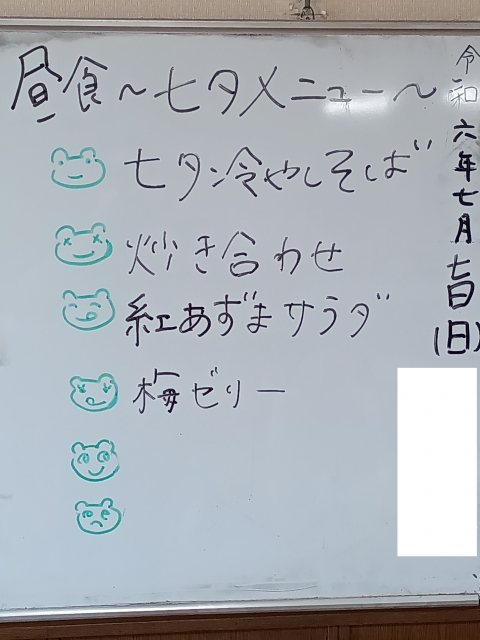 昼食～七夕メニュー～
七夕冷やしそば
炒き合わせ
紅あずまサラダ
梅ゼリー
令和六年七月七日(日)